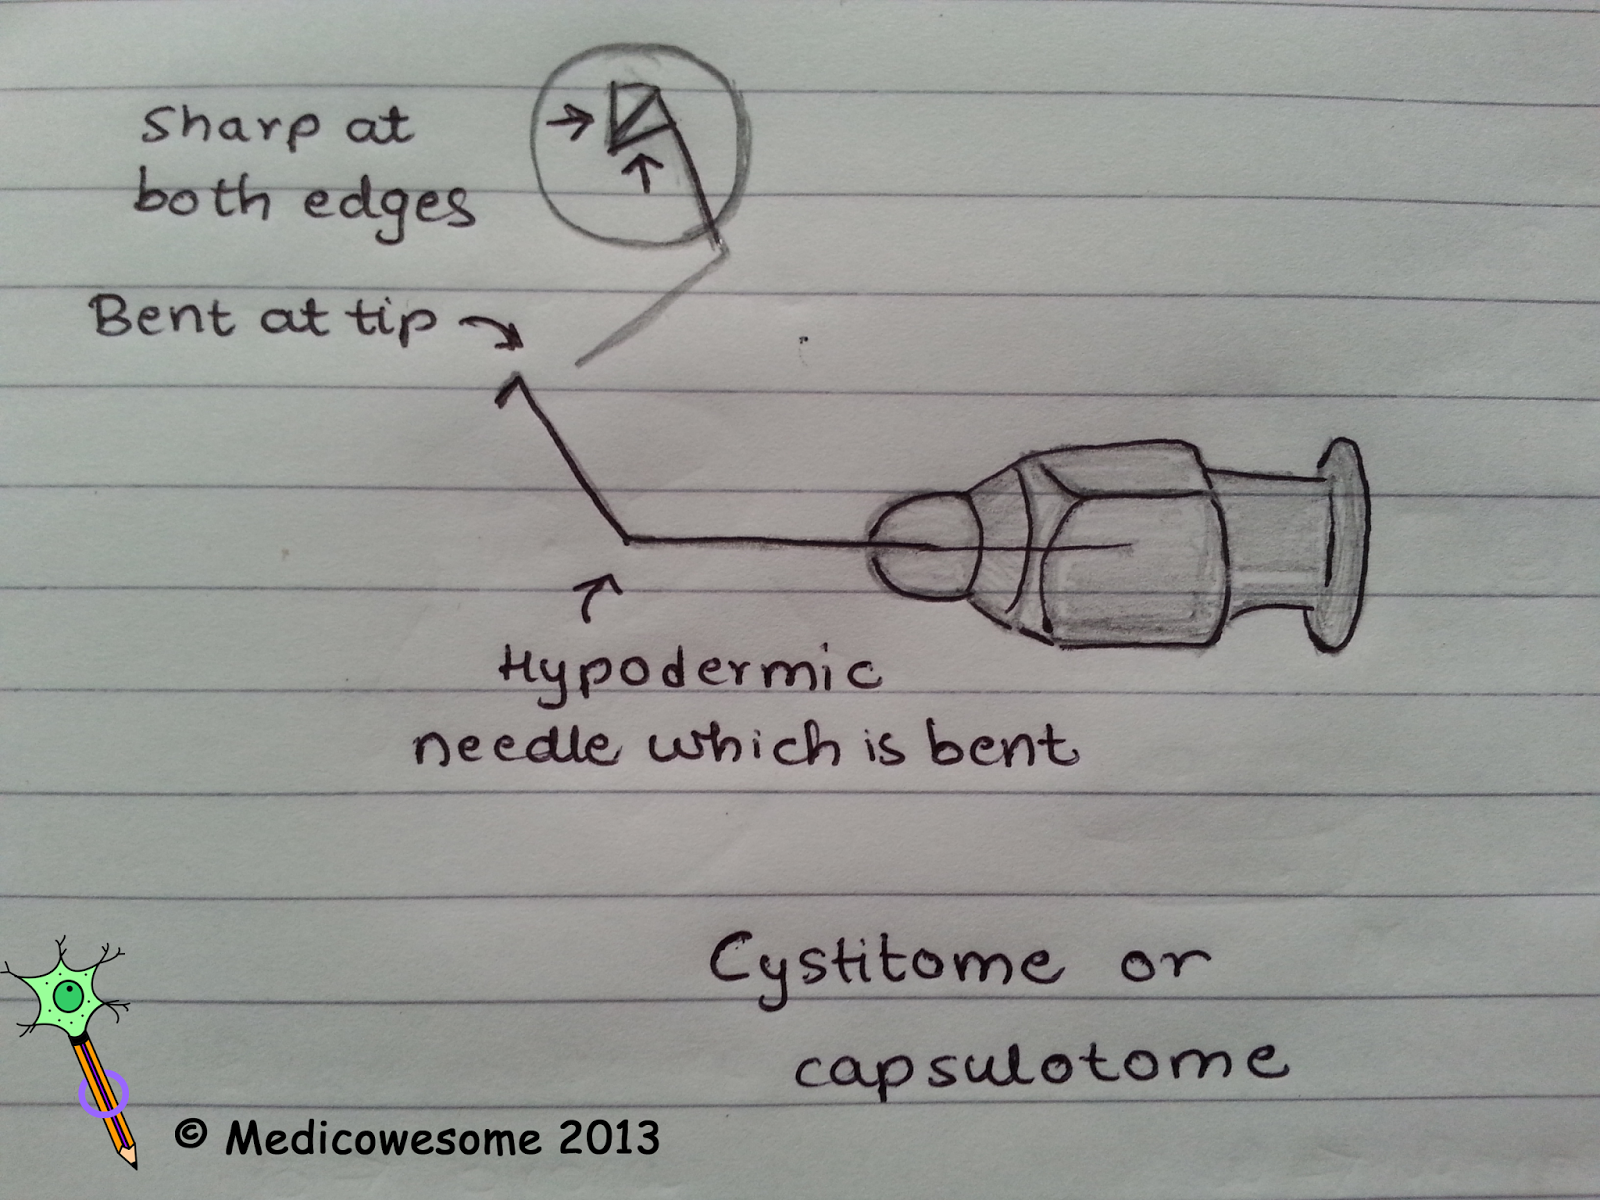 Sharp at
both edges
Bent at tip
Hypodermic
needle which is bent
Cystitome or
capsulotome
© Medicowesome 2013